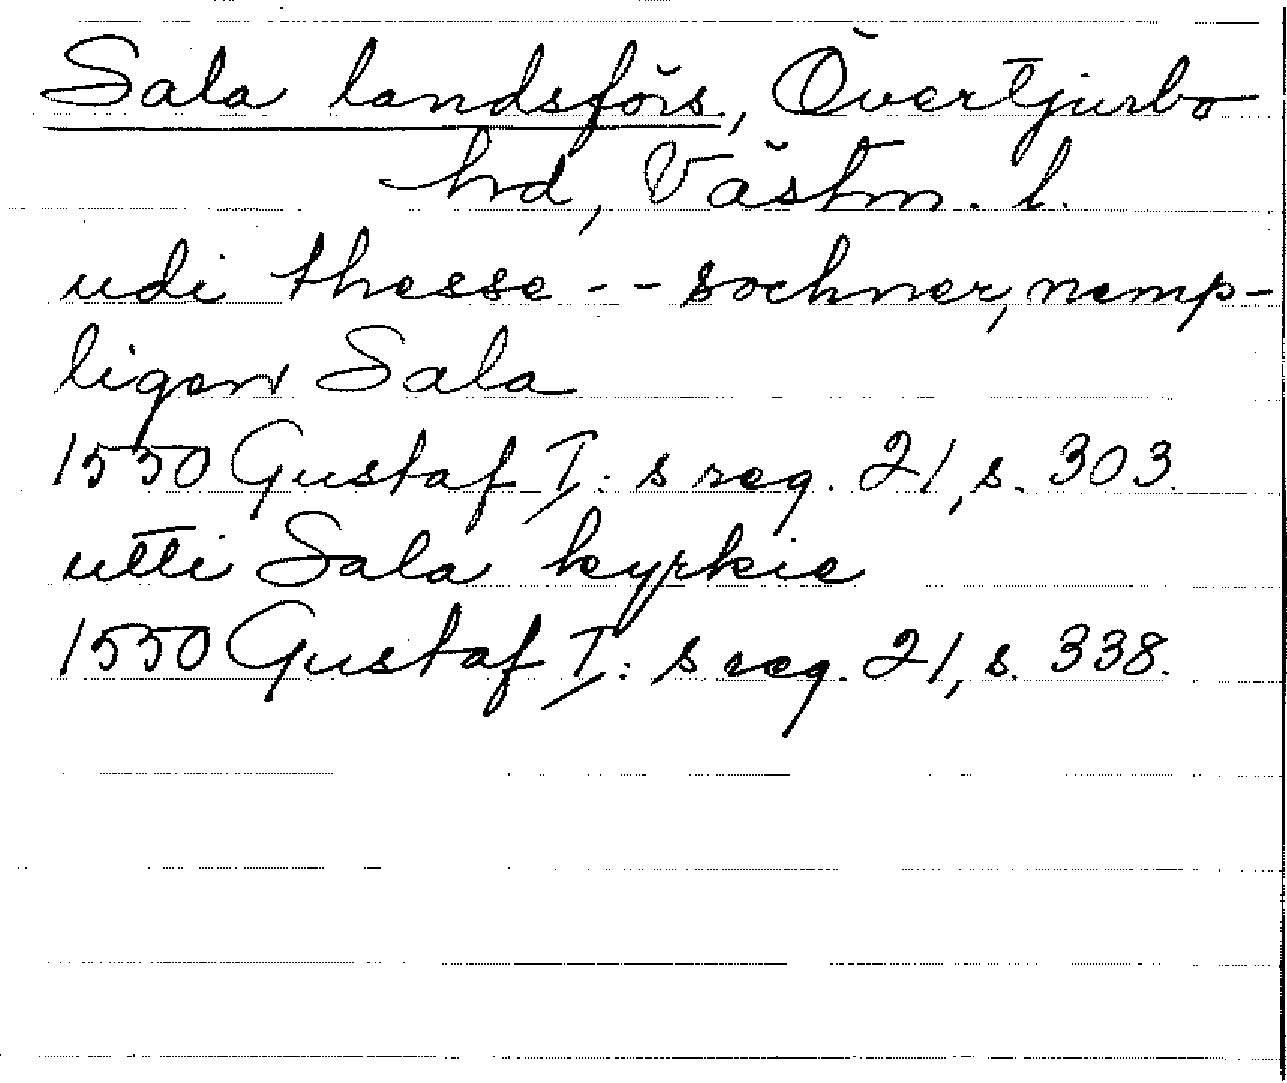 Sala landsförs., Övertjurbo
hd, Västm. l.
udi thesse -- sochner, nemp-
ligen Sala
1550 Gustaf I:s reg. 21, s. 303.
utti Sala kyrkie
1550 Gustaf I:s reg. 21, s. 338.